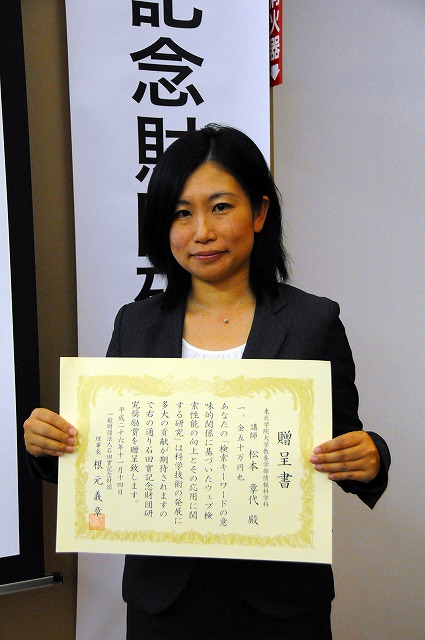 消火器
記念財団研
贈呈書
東北学院大学教養学部情報科学科
講師 松本 章代 殿
一、金五十万円也
あなたの「検索キーワードの意
味的関係に基づいたウェブ検
索性能の向上とその応用に関
する研究」は科学技術の発展に
多大の貢献が期待されますの
で右の通り石田實記念財団研
究奨励賞を贈呈致します。
平成二十六年十一月十四日
一般財団法人石田實記念財団
理事長 根元義章